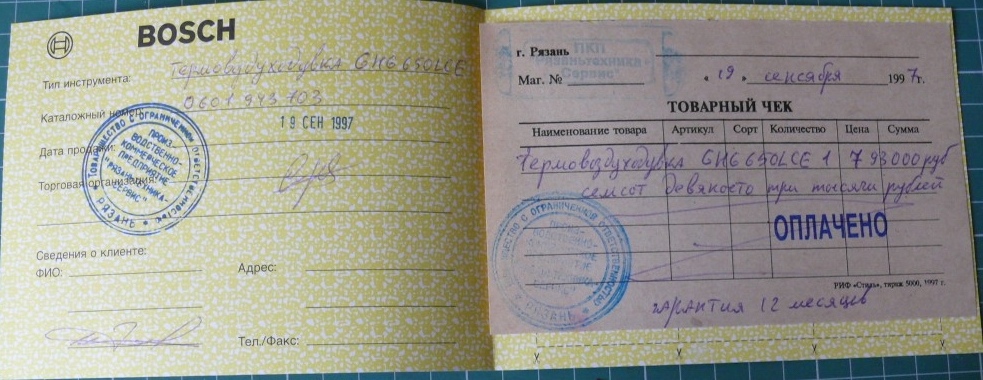 BOSCH
Тип инструмента: Термовоздуходувка GHG 650LCE
Каталожный номер: 0601 943 703
Дата продажи: 19 СЕН 1997
Торговая организация:
ТОВАРИЩЕСТВО С ОГРАНИЧЕННОЙ ОТВЕТСТВЕННОСТЬЮ
ПРОИЗ-
ВОДСТВЕННО-
КОММЕРЧЕСКОЕ
ПРЕДПРИЯТИЕ
"РЯЗАНЬТЕХНИКА-
СЕРВИС"
РЯЗАНЬ
Сведения о клиенте:
ФИО:
Адрес:
Тел./Факс:
ПКП
"Рязаньтехника -
Сервис"
г. Рязань
Маг. №
« 19 » сентября 1997г.
ТОВАРНЫЙ ЧЕК
Наименование товара Артикул Сорт Количество Цена Сумма
Термовоздуходувка GHG 650LCE 1 793000 руб
семсот девяносто три тысячи рублей
ОПЛАЧЕНО
С ОГРАНИЧЕННОЙ ОТВЕТСТВЕННОСТЬЮ
РЯЗАНЬ
РИФ «Стиль», тираж 5000, 1997 г.
гарантия 12 месяцев